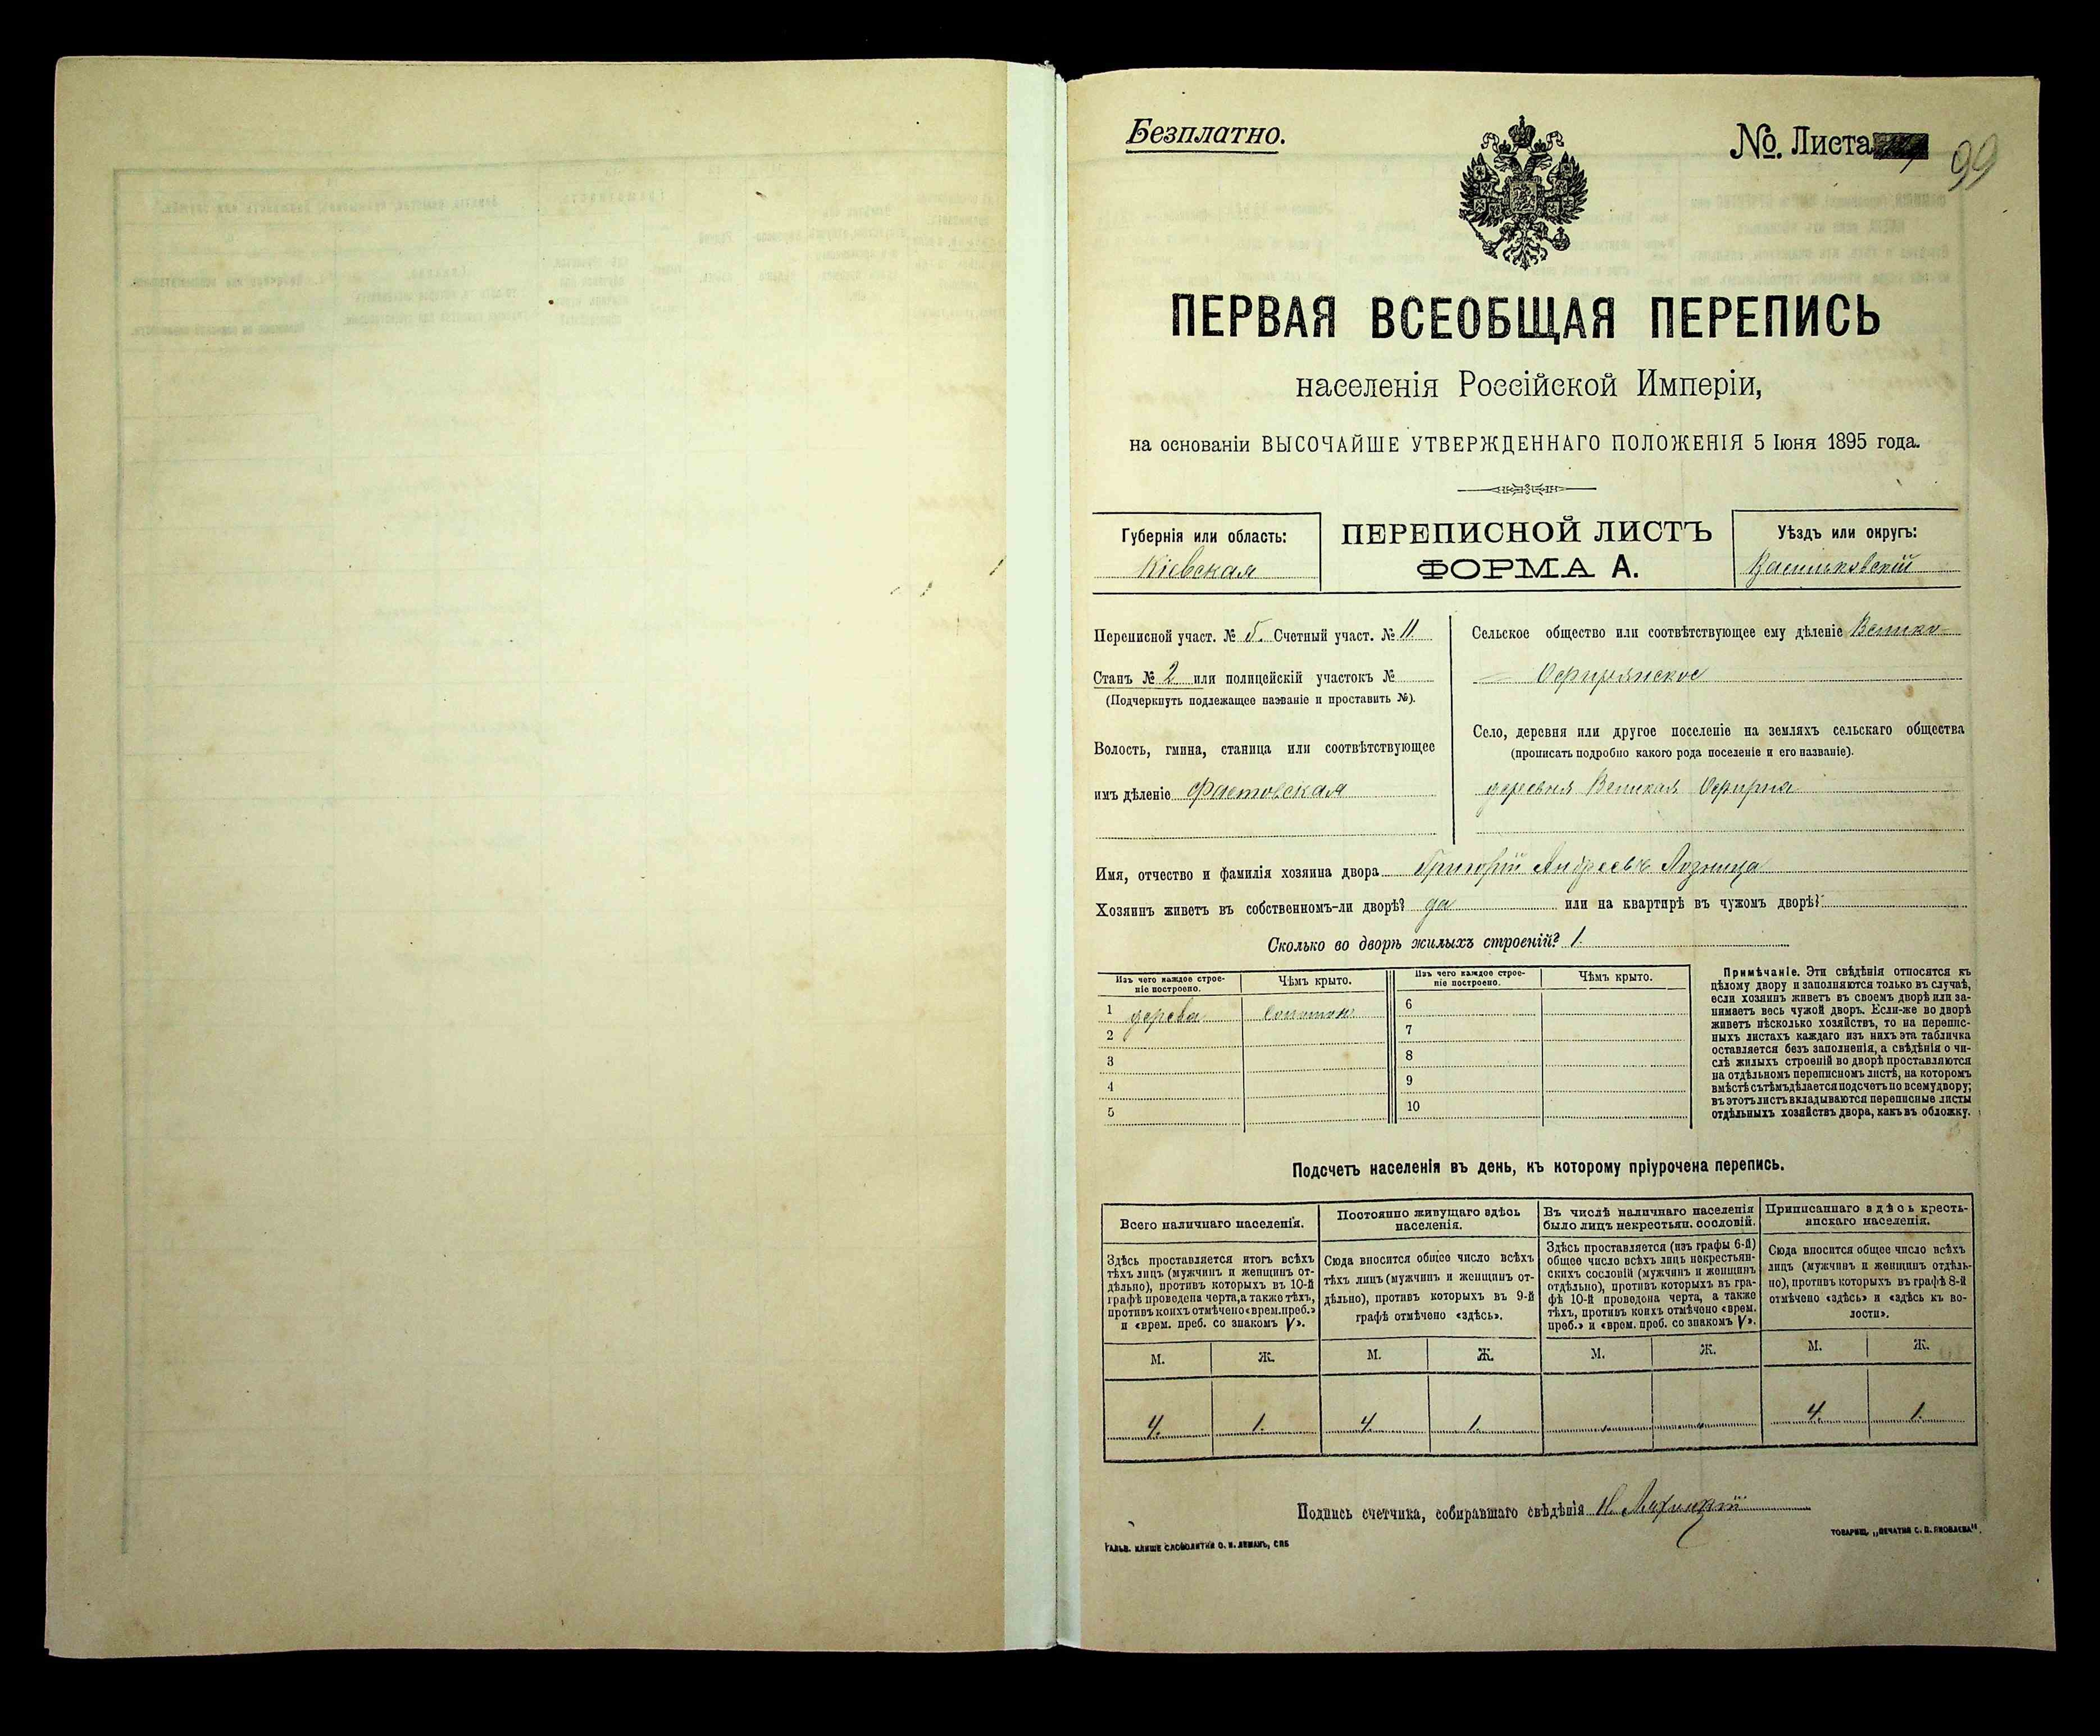 Безплатно.
№. Листа 99
ПЕРВАЯ ВСЕОБЩАЯ ПЕРЕПИСЬ
населенія Россійской Имперіи,
на основаніи ВЫСОЧАЙШЕ УТВЕРЖДЕННАГО ПОЛОЖЕНІЯ 5 Іюня 1895 года.
Губернія или область:
Кіевская
ПЕРЕПИСНОЙ ЛИСТЪ
ФОРМА А.
Уѣздъ или округъ:
Васильковскій
Переписной участ. № 5. Счетный участ. № 11
Станъ № 2 или полицейскій участокъ №
(Подчеркнуть подлежащее названіе и проставить №).
Волость, гмина, станица или соотвѣтствующее
имъ дѣленіе Фастовская
Сельское общество или соотвѣтствующее ему дѣленіе Велико-
Офирнянское
Село, деревня или другое поселеніе на земляхъ сельскаго общества
(прописать подробно какого рода поселеніе и его названіе).
деревня Великая Офирна
Имя, отчество и фамилія хозяина двора Григорій Андреевъ Лозница
Хозяинъ живетъ въ собственномъ-ли дворѣ? да или на квартирѣ въ чужомъ дворѣ?
Сколько во дворѣ жилыхъ строеній? 1.
Изъ чего каждое строе-
ніе построено.
Чѣмъ крыто.
1 дерева соломою
2
3
4
5
Изъ чего каждое строе-
ніе построено.
Чѣмъ крыто.
6
7
8
9
10
Примѣчаніе. Эти свѣдѣнія относятся къ
цѣлому двору и заполняются только въ случаѣ,
если хозяинъ живетъ въ своемъ дворѣ или за-
нимаетъ весь чужой дворъ. Если-же во дворѣ
живетъ нѣсколько хозяйствъ, то на перепис-
ныхъ листахъ каждаго изъ нихъ эта табличка
оставляется безъ заполненія, а свѣдѣнія о чи-
слѣ жилыхъ строеній во дворѣ проставляются
на отдѣльномъ переписномъ листѣ, на которомъ
вмѣстѣ съ тѣмъ дѣлается подсчетъ по всему двору;
въ этотъ листъ вкладываются переписные листы
отдѣльныхъ хозяйствъ двора, какъ въ обложку.
Подсчетъ населенія въ день, къ которому пріурочена перепись.
Всего наличнаго населенія.
Здѣсь проставляется итогъ всѣхъ
тѣхъ лицъ (мужчинъ и женщинъ от-
дѣльно), противъ которыхъ въ 10-й
графѣ проведена черта, а также тѣхъ,
противъ коихъ отмѣчено «врем. преб.»
и «врем. преб. со знакомъ V».
М. Ж.
4. 1.
Постоянно живущаго здѣсь
населенія.
Сюда вносится общее число всѣхъ
тѣхъ лицъ (мужчинъ и женщинъ от-
дѣльно), противъ которыхъ въ 9-й
графѣ отмѣчено «здѣсь».
М. Ж.
4. 1.
Въ числѣ наличнаго населенія
было лицъ некрестьян. сословій.
Здѣсь проставляется (изъ графы 6-й)
общее число всѣхъ лицъ некрестьян-
скихъ сословій (мужчинъ и женщинъ
отдѣльно), противъ которыхъ въ гра-
фѣ 10-й проведена черта, а также
тѣхъ, противъ коихъ отмѣчено «врем.
преб.» и «врем. преб. со знакомъ V».
М. Ж.
Приписаннаго здѣсь кресть-
янскаго населенія.
Сюда вносится общее число всѣхъ
лицъ (мужчинъ и женщинъ отдѣль-
но), противъ которыхъ въ графѣ 8-й
отмѣчено «здѣсь» и «здѣсь къ во-
лости».
М. Ж.
4. 1.
Подпись счетчика, собиравшаго свѣдѣнія
ГАЛЬВ. КЛИШЕ СЛОВОЛИТНИ О. И. ЛЕМАНЪ, СПБ
ТОВАРИЩ. „ПЕЧАТНЯ С. П. ЯКОВЛЕВА".